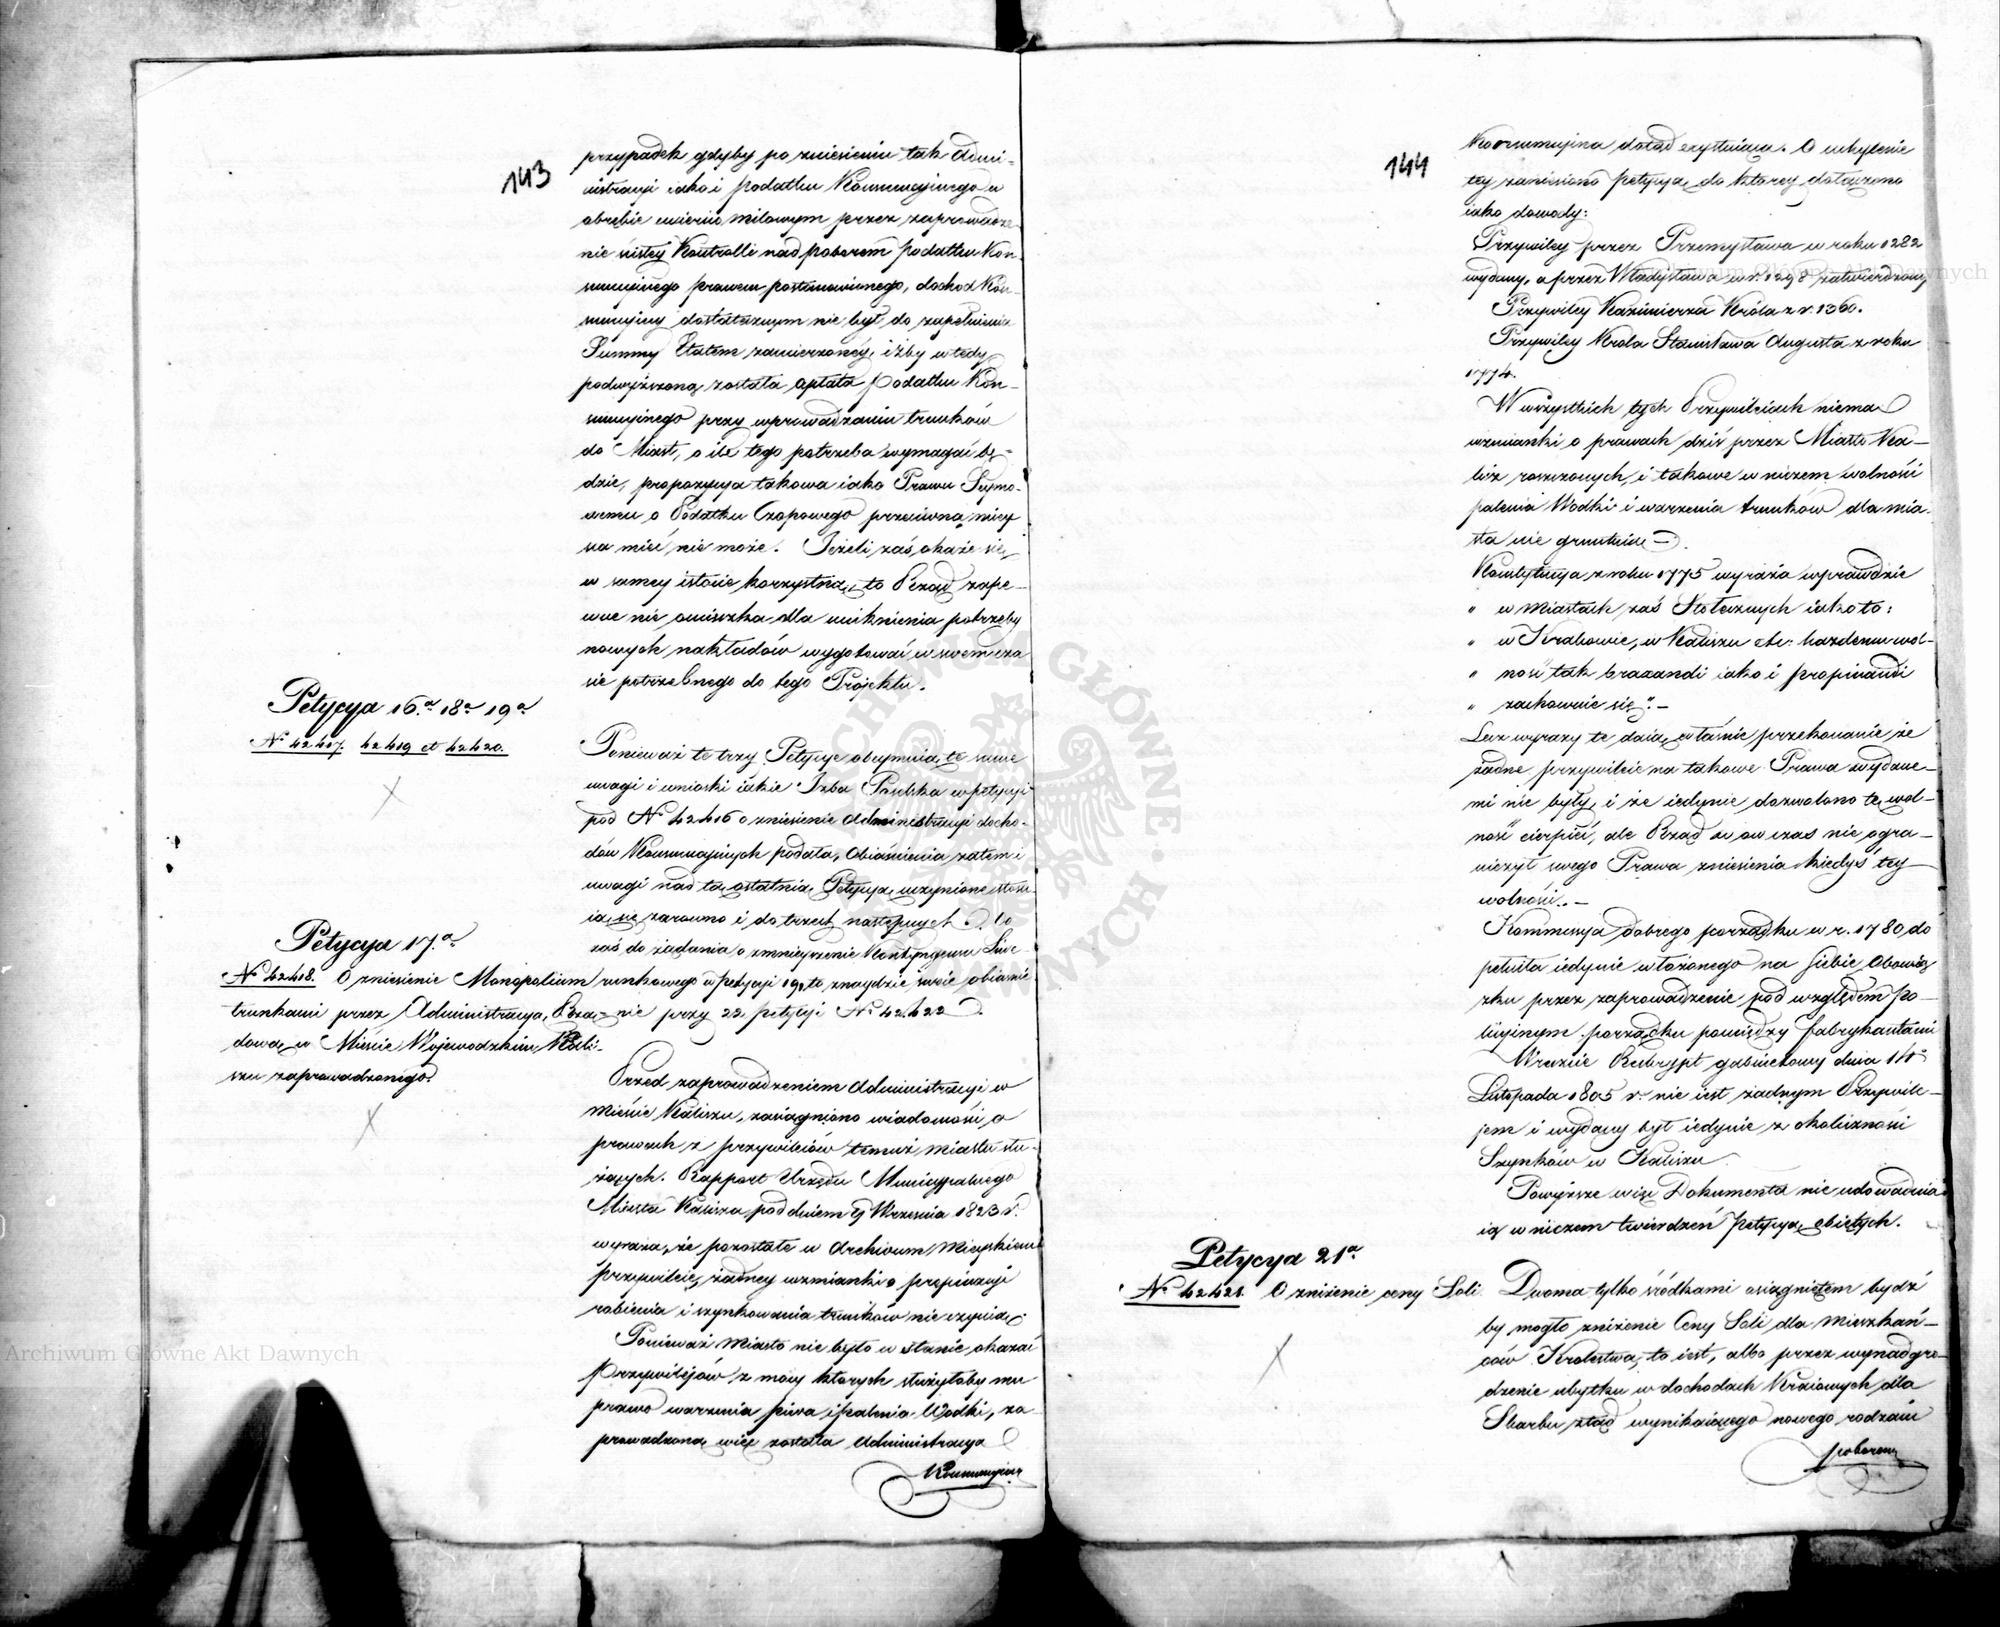 143
przypadek gdyby po zniesieniu tak Admi-
nistracyi iako i podatku Konsumcyinego w
obrębie ćwierć milowym przez zaprowadze-
nie ścisłey Kontrolli nad poborem podatku Kon-
sumcyinego prawem postanowionego, dochod Kon-
sumcyiny dostatecznym nie był do zapełnienia
Summy Etatem zamierzonéy, iżby wtedy
podwyższoną została opłata Podatku Kon-
sumcyinego przy wprowadzaniu trunków
do Miast, o ile tego potrzeba wymagać bę-
dzie, propozycya takowa iako Prawu Seymo-
wemu o Podatku Czopowego przeciwną miey
sca mieć nie może. Jeżeli zaś okaże się
w samey istocie korzystną, to Rząd zape-
wne nie omieszka dla uniknienia potrzeby
nowych nakładów wygotować w swem cza
sie potrzebnego do tego Projektu.
Petycya 16.a 18a 19a
No 42417. 42419 et 42420.
Ponieważ te trzy Petycye obeymuią te same
uwagi i wnioski iakie Izba Poselska w petycyi
pod No 42416 o zniesienie Administracyi docho-
dów Konsumcyinych podała, Obiaśnienia zatem i
uwagi nad tą ostatnią Petycyą uczynione stosu-
ią się zarówno i do trzech następnych. Co
zaś do żądania o zmnieyszenie Kontyngensu Liwe-
runkowego w petycyi 19, to znaydzie swoie obiaśnie-
nie przy 22 petycyi No 42422.
Petycya 17.a
No 42418. O zniesienie Monopolium
trunkami przez Administracyą Rzą-
dową w Mieście Wojewodzkim Kali-
szu zaprowadzonego.
Przed zaprowadzeniem Administracyi w
Mieście Kaliszu, zasiągniono wiadomości o
prawach z przywileiów temuż miastu słu-
żących. Rapport Urzędu Municypalnego
Miasta Kalisza pod dniem 9 Września 1823 r.
wyraża, że pozostałe w Archivum Mieyskiem
przywileie, żadney wzmianki o propinacyi
robienia i szynkowania trunków nie czynią.
Ponieważ Miasto nie było w stanie okazać
Przywilejów z mocy ktorych służyłoby mu
prawo warzenia piwa i palenia Wodki, za-
prowadzoną więc została Administracya
Konsumcyina
144
Konsumcyina dotąd exystuiąca. O uchylenie
tey zaniesiono petycyą, do ktorey dołączono
iako dowody:
Przywiley przez Przemysława w roku 1282
wydany, a przez Władysława w r. 1298 zatwierdzony
Przywiley Kazimierza Króla z r. 1360.
Przywiley Krola Stanisława Augusta z roku
1774.
W wszystkich tych Przywileiach niema
wzmianki o prawach dziś przez Miasto Ka-
lisz roszczonych, i takowe w niczem wolności
palenia Wodki i warzenia trunków dla mia-
sta nie gruntuie.
Konstytucya z roku 1775 wyraża wprawdzie
" w Miastach zaś Stołecznych iako to:
" w Krakowie, w Kaliszu etc: każdemu wol-
" ność tak brazandi iako i propinandi
" zachowuie się". -
Lecz wyrazy te daią właśnie przekonanie że
żadne przywileie na takowe Prawa wydane-
mi nie były, i że iedynie dozwolono tę wol-
ność cierpieć, ale Rząd w ow czas nie ogra-
niczył swego Prawa zniesienia kiedyś tey
wolności. -
Kommissya dobrego porządku w r. 1780 do
pełniła iedynie włożonego na siebie Obowią
zku przez zaprowadzenie pod względem Po-
licyinym porządku pomiędzy fabrykantami
Wreszcie Reskrypt gabinetowy dnia 14o
Listopada 1805 r. nie iest żadnym Przywile-
jem i wydany był iedynie z okoliczności
Szynków w Kaliszu.
Powyższe więc Dokumenta nie udowadnia
ią w niczem twierdzeń petycyą obiętych.
Petycya 21a
No 42421. O zniżenie ceny Soli.
Dwoma tylko śrzódkami osiągniętem bydź
by mogło zniżenie Ceny Soli dla Mieszkań-
ców Krolestwa, to iest, albo przez wynadgro-
dzenie ubytku w dochodach Kraiowych dla
Skarbu ztąd wynikaiącego nowego rodzaiu
poborem
Archiwum Główne Akt Dawnych